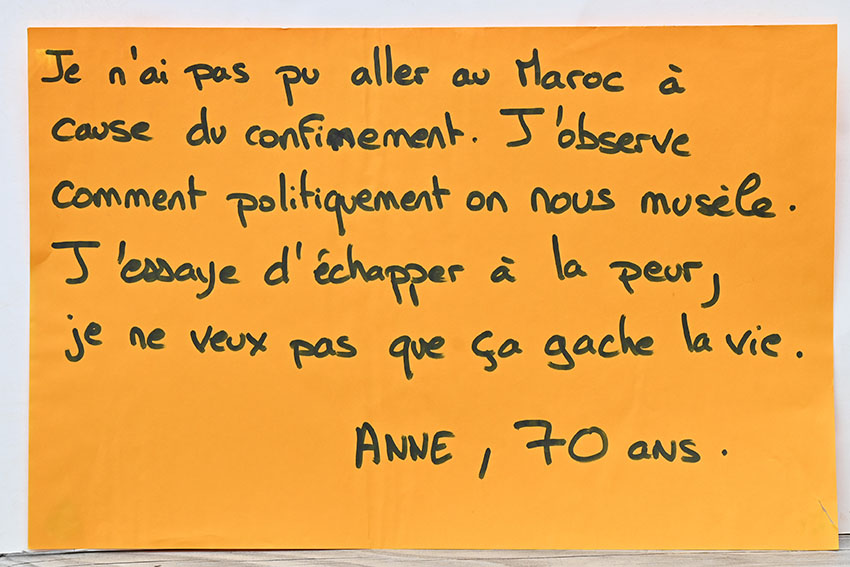 Je n'ai pas pu aller au Maroc à
cause du confinement. J'observe
comment politiquement on nous musèle.
J'essaye d'échapper à la peur,
je ne veux pas que ça gache la vie.
ANNE, 70 ans.